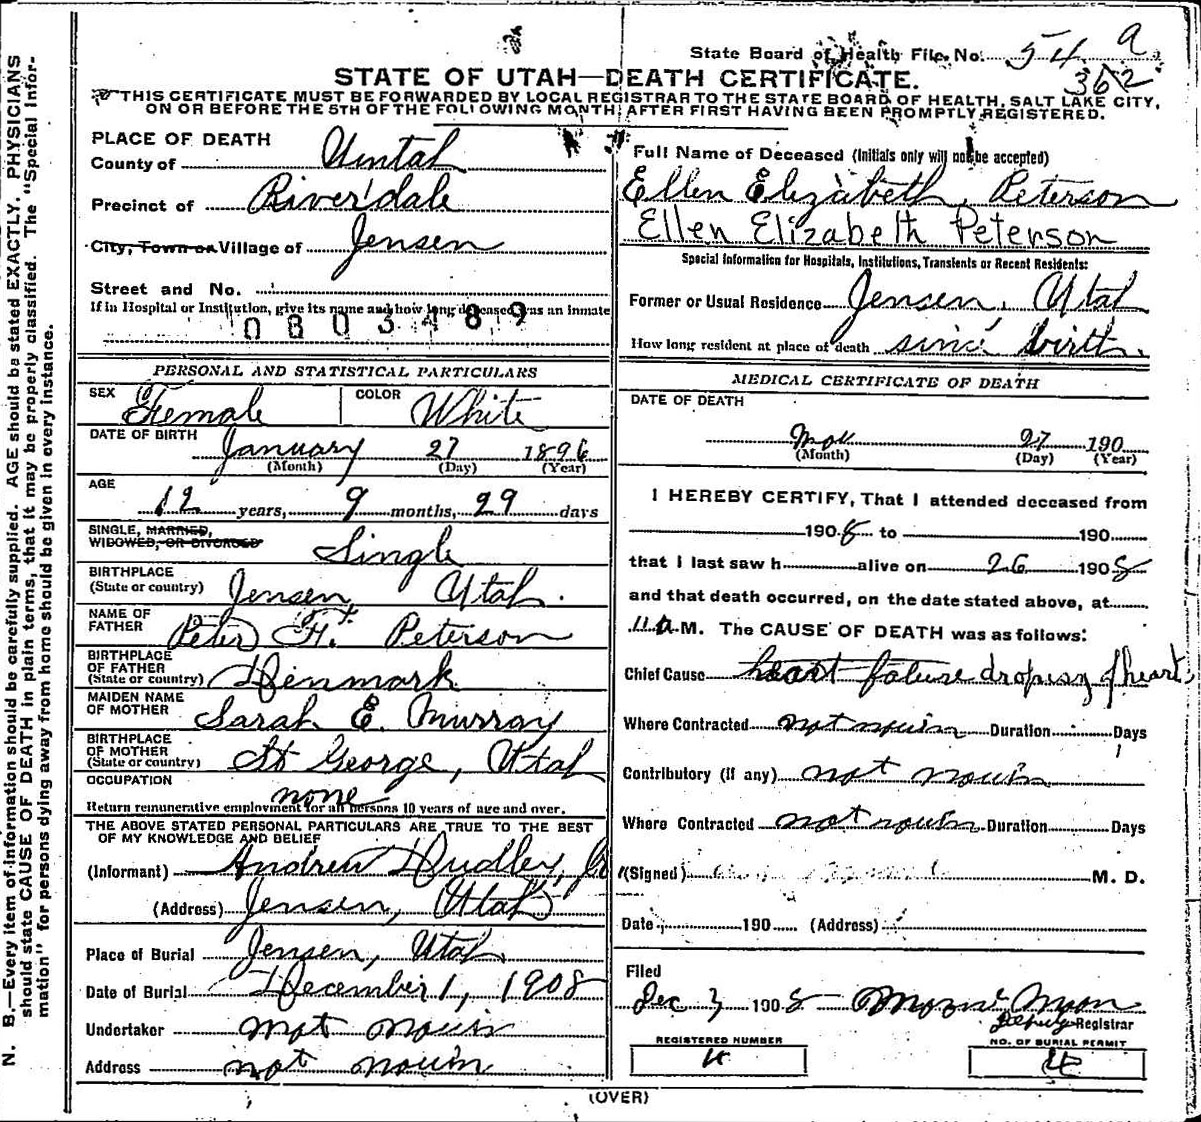 State Board of Health File No. 54 a
362
STATE OF UTAH—DEATH CERTIFICATE.
THIS CERTIFICATE MUST BE FORWARDED BY LOCAL REGISTRAR TO THE STATE BOARD OF HEALTH, SALT LAKE CITY,
ON OR BEFORE THE 5TH OF THE FOLLOWING MONTH AFTER FIRST HAVING BEEN PROMPTLY REGISTERED.
PLACE OF DEATH
County of Uintah
Precinct of Riverdale
City, Town or Village of Jensen
Street and No.
If in Hospital or Institution, give its name and how long deceased was an inmate
0803489
PERSONAL AND STATISTICAL PARTICULARS
SEX Female COLOR White
DATE OF BIRTH January 27 1896
(Month) (Day) (Year)
AGE
12 years, 9 months, 29 days
SINGLE, MARRIED,
WIDOWED, OR DIVORCED Single
BIRTHPLACE
(State or country) Jensen Utah.
NAME OF
FATHER Peter H. Peterson
BIRTHPLACE
OF FATHER
(State or country) Denmark
MAIDEN NAME
OF MOTHER Sarah E. Murray
BIRTHPLACE
OF MOTHER
(State or country) St George, Utah
OCCUPATION
none
Return remunerative employment for all persons 10 years of age and over.
THE ABOVE STATED PERSONAL PARTICULARS ARE TRUE TO THE BEST
OF MY KNOWLEDGE AND BELIEF
(Informant) Andrew Dudley,
(Address) Jensen, Utah
Place of Burial Jensen, Utah
Date of Burial December 1, 1908
Undertaker not nouin
Address not nouin
Full Name of Deceased (Initials only will not be accepted)
Ellen Elizabeth Peterson
Ellen Elizabeth Peterson
Special Information for Hospitals, Institutions, Transients or Recent Residents:
Former or Usual Residence Jensen, Utah
How long resident at place of death since birth.
MEDICAL CERTIFICATE OF DEATH
DATE OF DEATH
Nov 27 190
(Month) (Day) (Year)
I HEREBY CERTIFY, That I attended deceased from
190 8 to 190
that I last saw h alive on 26 190 8
and that death occurred, on the date stated above, at
11 A M. The CAUSE OF DEATH was as follows:
Chief Cause heart falure dropisy of heart
Where Contracted not nouin Duration Days
Contributory (if any) not nouin
Where Contracted not nouin Duration Days
(Signed) M. D.
Date 190 (Address)
Filed
Dec 3 190 8
Deputy Registrar
REGISTERED NUMBER NO. OF BURIAL PERMIT
(OVER)
N. B.—Every item of information should be carefully supplied. AGE should be stated EXACTLY. PHYSICIANS
should state CAUSE OF DEATH in plain terms, that it may be properly classified. The "Special Infor-
mation" for persons dying away from home should be given in every instance.